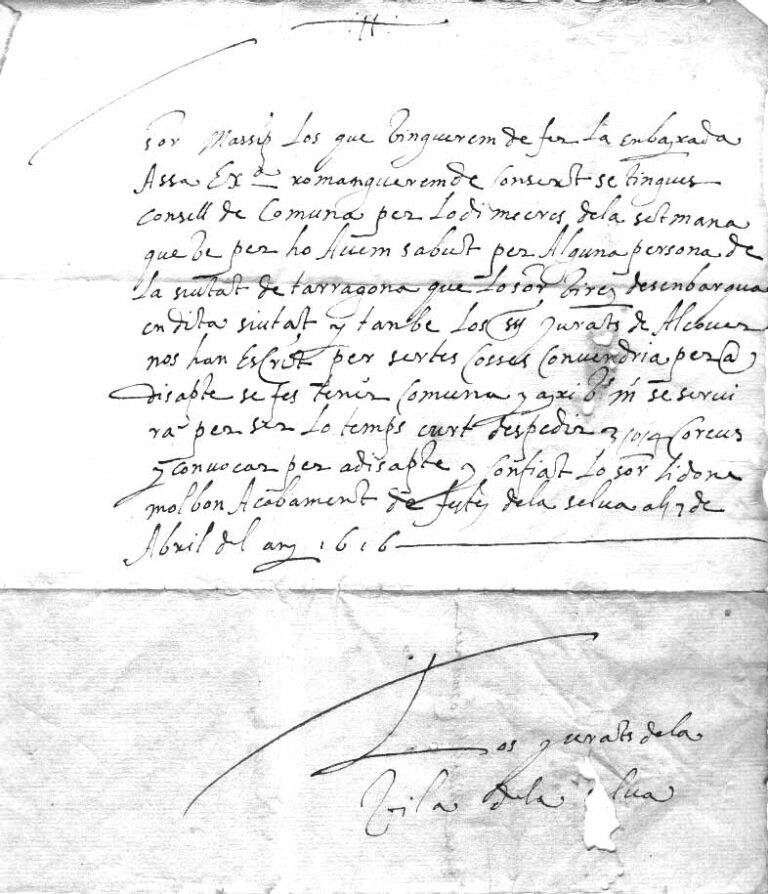 sor Massip Los que vinguerem de fer La enbaxada
Assa Exa romanguerem de consert se tingues
consell de Comuna per Lo dimecres dela setmana
que ve per ho Avem sabut per Alguna persona de
La siutat de tarragona que Lo sor virey desenbarqua
en dita siutat y tanbe Los jurats de Alcover
nos han Escrit per sertes cosses convendria per a
disapte se fes tenir comuna y axi vs m se servi
ra per ser Lo temps curt despedir correus
y convocar per a disapte y confiat Lo sor li done
molbon Acabament de dela selva als 7 de
Abril del any 1616
Los jurats dela
vila dela selva